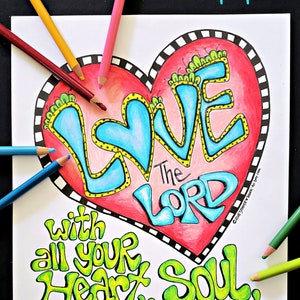 LOVE
The
LORD
with
all your
Heart,
Soul